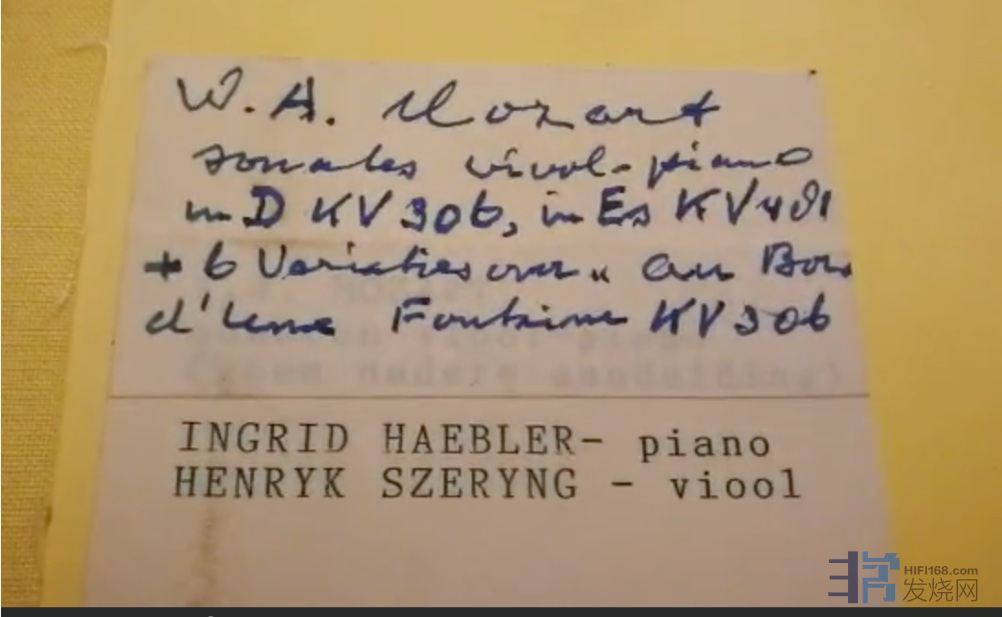 W. A. Mozart
sonates viool-piano
in D KV 306, in Es KV 481
+ 6 Variaties over "au Bord
d'une Fontaine KV 306
INGRID HAEBLER- piano
HENRYK SZERYNG - viool
HIFI168.com
发烧网